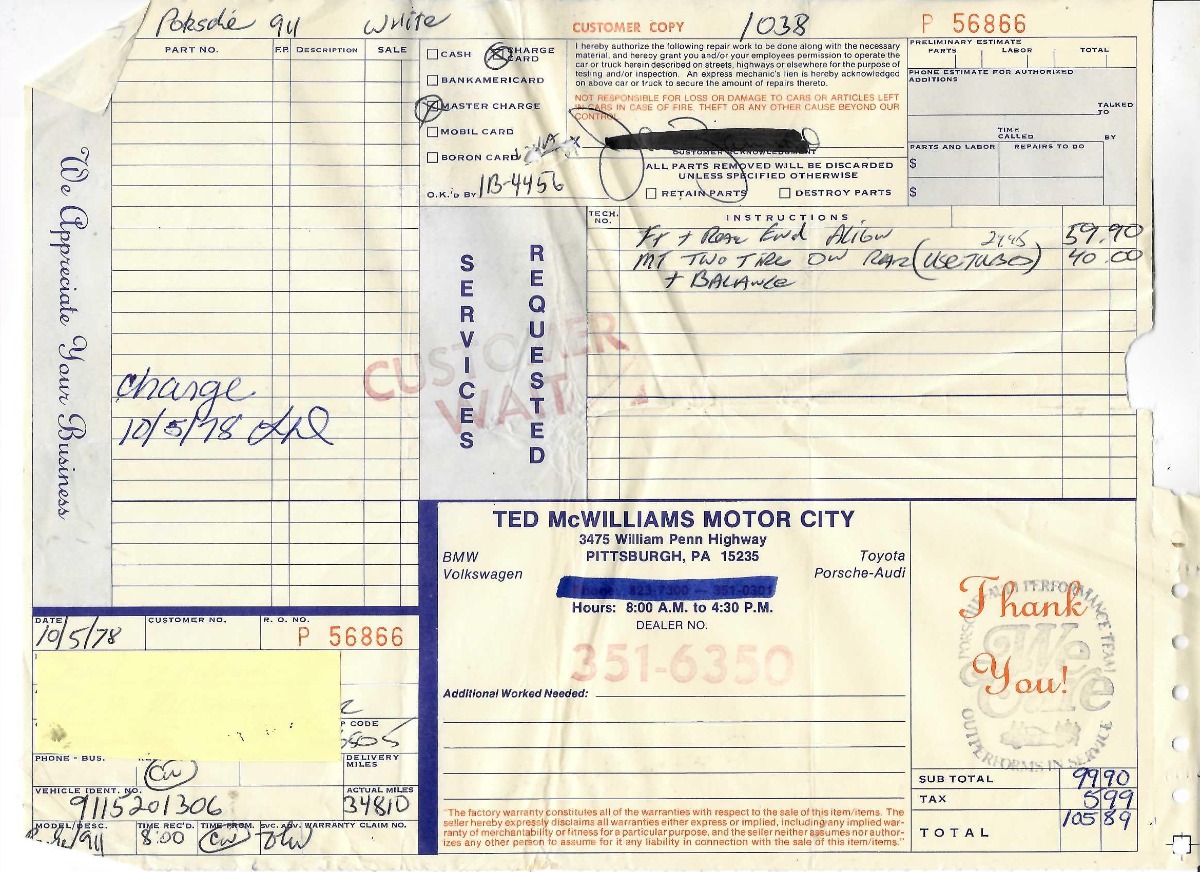 Porsche 911 White
CUSTOMER COPY
1038
P 56866
PART NO. F.P. DESCRIPTION SALE
CASH
CHARGE CARD
BANKAMERICARD
MASTER CHARGE
MOBIL CARD
BORON CARD
O.K.'D BY 1B-4456
I hereby authorize the following repair work to be done along with the necessary
material, and hereby grant you and/or your employees permission to operate the
car or truck herein described on streets, highways or elsewhere for the purpose of
testing and/or inspection. An express mechanic's lien is hereby acknowledged
on above car or truck to secure the amount of repairs thereto.
NOT RESPONSIBLE FOR LOSS OR DAMAGE TO CARS OR ARTICLES LEFT
IN CARS IN CASE OF FIRE, THEFT OR ANY OTHER CAUSE BEYOND OUR
CONTROL.
CUSTOMER ACKNOWLEDGMENT
ALL PARTS REMOVED WILL BE DISCARDED
UNLESS SPECIFIED OTHERWISE
RETAIN PARTS DESTROY PARTS
PRELIMINARY ESTIMATE
PARTS LABOR TOTAL
PHONE ESTIMATE FOR AUTHORIZED
ADDITIONS
TALKED
TO
TIME
CALLED BY
PARTS AND LABOR REPAIRS TO DO
$
$
We Appreciate Your Business
SERVICES
REQUESTED
TECH.
NO. INSTRUCTIONS
Ft + Rear End Align 59.90
MT Two Tires on Rear (Use Tubes) 2995 40.00
+ BALANCE
CUSTOMER
WAIT
charge
10/5/78
TED McWILLIAMS MOTOR CITY
3475 William Penn Highway
BMW PITTSBURGH, PA 15235 Toyota
Volkswagen Porsche-Audi
Phone: 823-7300 — 351-0301
Hours: 8:00 A.M. to 4:30 P.M.
DEALER NO.
351-6350
Additional Worked Needed:
"The factory warranty constitutes all of the warranties with respect to the sale of this item/items. The
seller hereby expressly disclaims all warranties either express or implied, including any implied war-
ranty of merchantability or fitness for a particular purpose, and the seller neither assumes nor author-
izes any other person to assume for it any liability in connection with the sale of this item/items."
Thank
You!
PORSCHE AUDI PERFORMANCE TEAM
We
Care
OUTPERFORMS IN SERVICE
SUB TOTAL 99 90
TAX 5 99
TOTAL 105 89
DATE CUSTOMER NO. R. O. NO.
10/5/78 P 56866
CODE
PHONE - BUS.
CW
DELIVERY
MILES
VEHICLE IDENT. NO. ACTUAL MILES
9115201306 34810
MODEL/DESC. TIME REC'D. TIME PROM. SVC. ADV. WARRANTY CLAIM NO.
911 8:00 CW